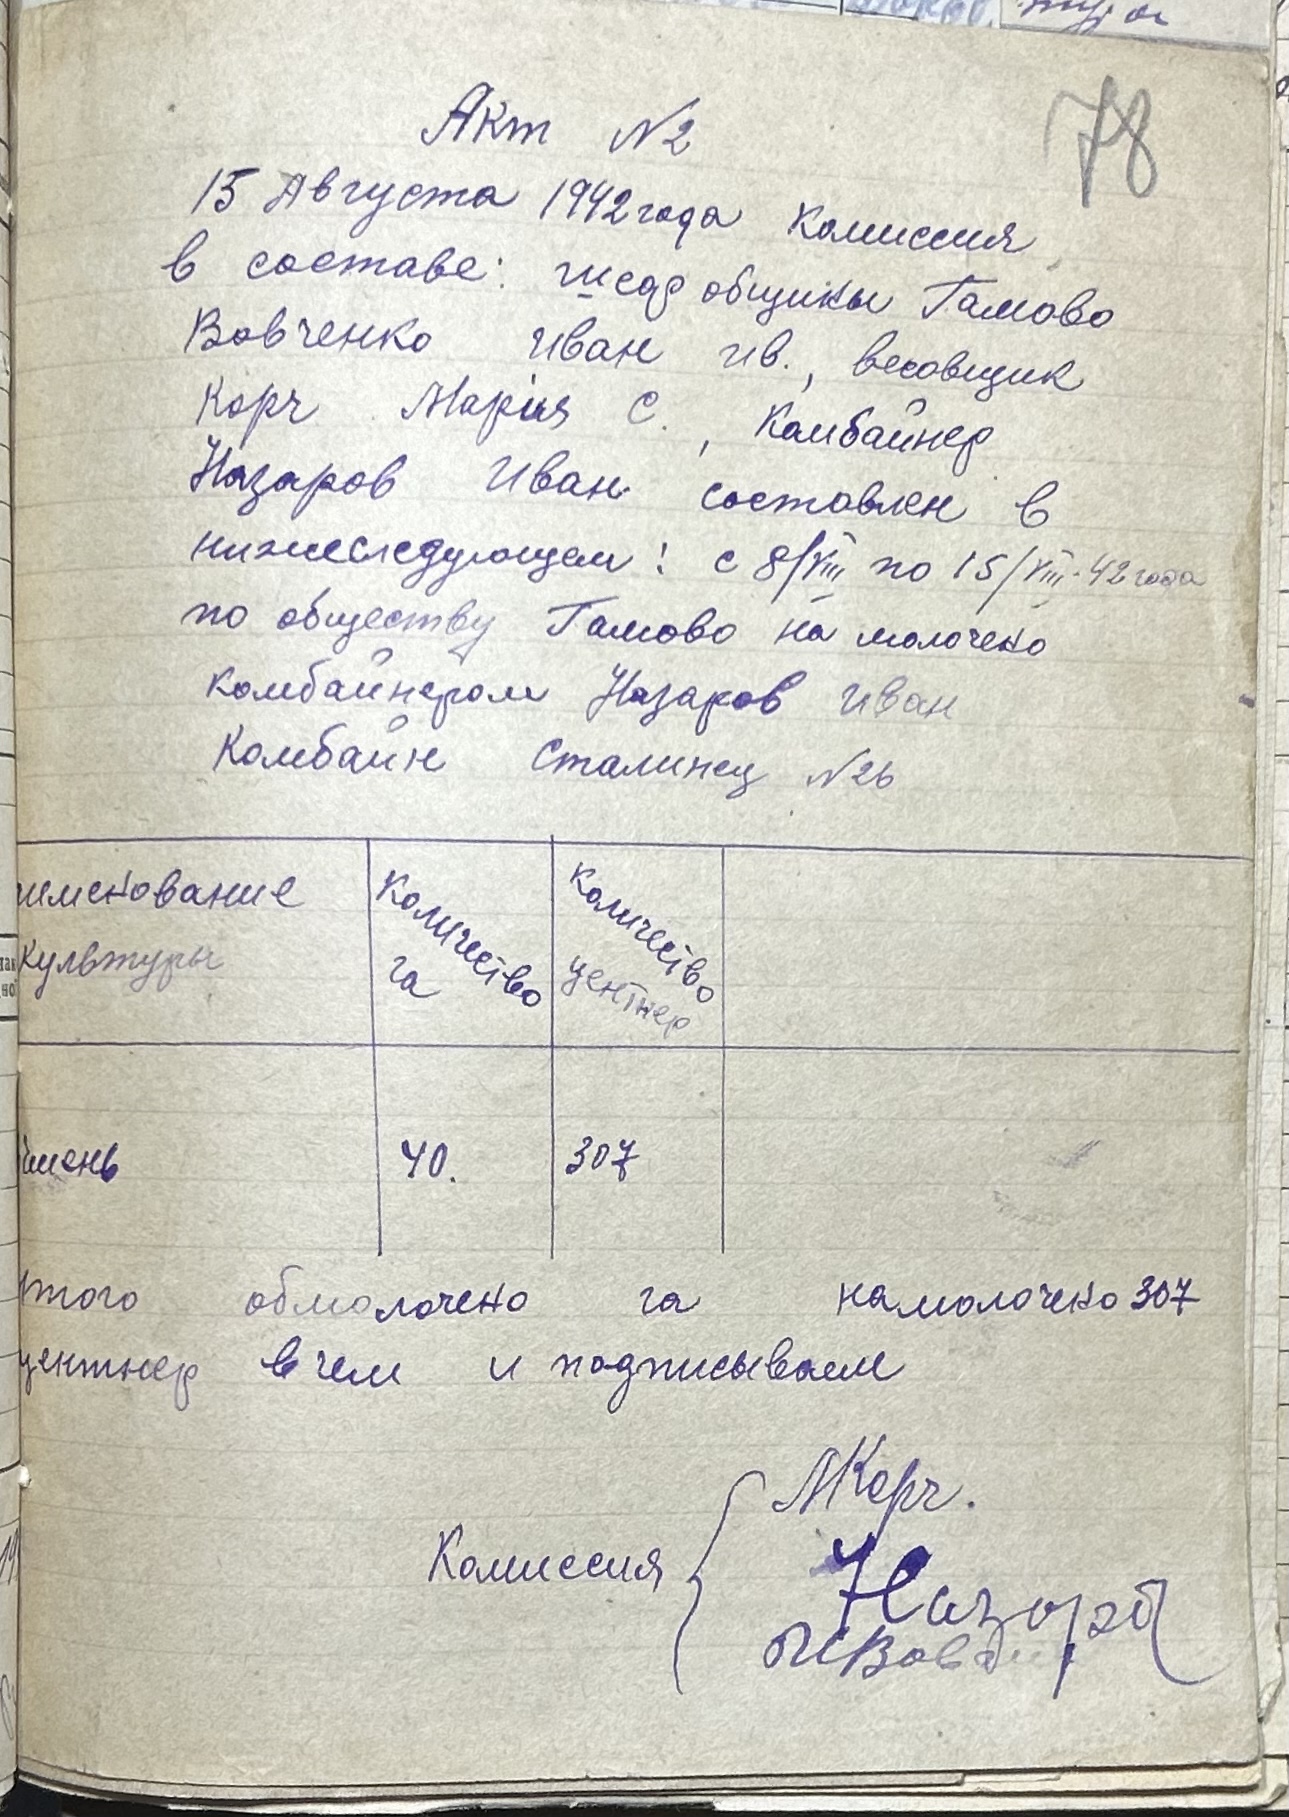 78
Акт N2
15 Августа 1942 года Комиссия
в составе: писар общины Гамово
Вовченко Иван Ив., весовщик
Корч Марія С., Комбайнер
Назаров Иван составлен в
нижеследующем: с 8/VIII по 15/VIII-42 года
по обществу Гамово на молочено
комбайнером Назаров Иван
Комбайн Сталинец N26
именование культуры
Количество га
Количество центнер
чмень
40.
307
того обмолочено га намолочено 307
центнер в чем и подписываем
Комиссия
МКорч.
Назаров